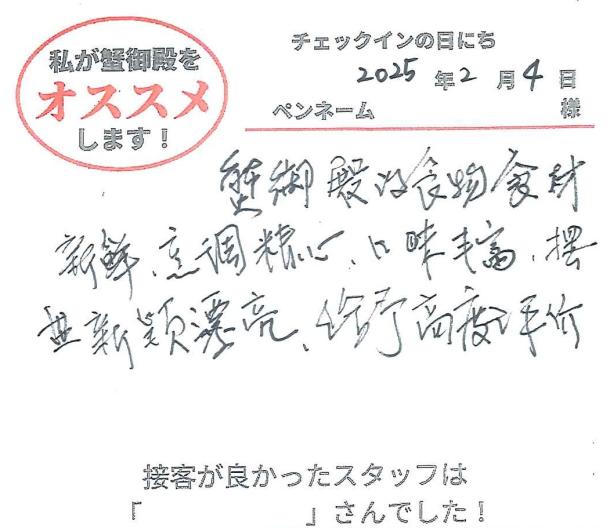 私が蟹御殿を
オススメ
します！
チェックインの日にち
2025年2月4日
ペンネーム 様
蟹御殿的食物食材
新鲜、烹调精心、口味丰富、摆
盘新颖漂亮、给予高度评价
接客が良かったスタッフは
「 」さんでした！